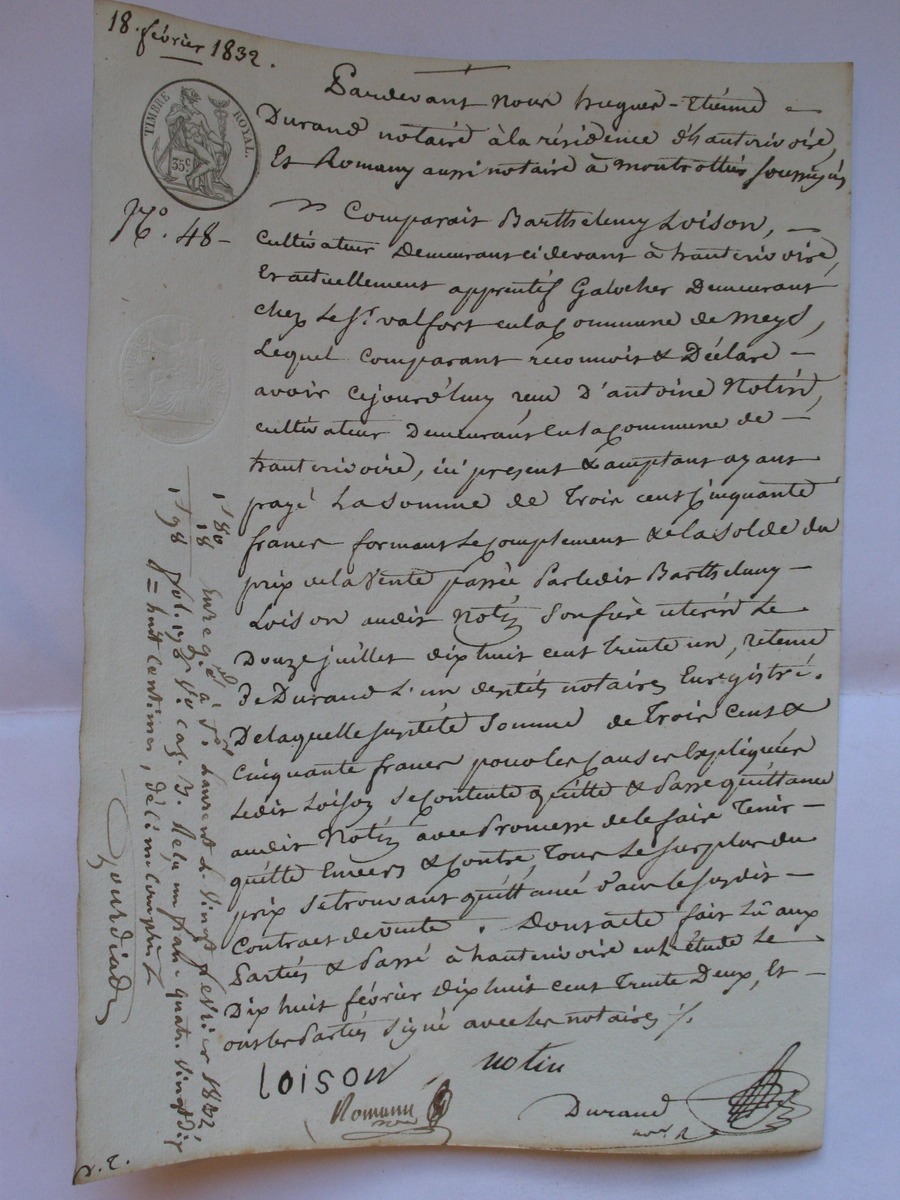 18. février 1832.
TIMBRE ROYAL.
35 c
N.o 48 -
Pardevant nous hugues-Etiénne -
Durand notaire à la résidence d'hauterivoire,
Et Romany aussi notaire à montrottier soussignés
Comparait Barthelemy Loison, -
cultivateur Demeurant ci devant à hauterivoire,
Et actuellement apprentif Galocher Demeurant
chez Le Sr. valfort en la Commune de meys,
Lequel comparant reconnoit & Déclare -
avoir cejourd'huy reçu D'antoine Notin,
cultivateur Demeurant en la Commune de -
hauterivoire, ici présent & acceptant ayant
payé La somme de Trois cent Cinquante
francs formant Le Complement & de la solde du
prix de la Vente passée Par ledit Barthelemy -
Loison audit Notin son frère uterin Le
Douze juillet dix huit cent trente un, retenue
De Durand L'un desdits notaires Enregistré.
De laquelle susditte somme de Trois Cent &
Cinquante francs pour les Causes Expliquées
Ledit Loison se Contente quitte & Passe quittance
audit Notin avec Promesse de le faire Tenir -
quitte Envers & Contre Tous Le surplus du
prix se trouvant quittancé dans le susdit -
Contract de vente. Dont acte fait Lû aux
Parties & Passé à hauterivoire en L'étude Le
Dix huit février dix huit cent Trente Deux, Et -
ont les Parties signé avec les notaires ./.
Loison notin
Romany Durand
nore
1f 80
18
1f 98
Enregé. à St. Laurent Le Vingt fevrier 1832
fol. 173 Vo. cas. 3. Reçu un franc quatre vingt dix
= huit centimes, décime compris
Gourdiade